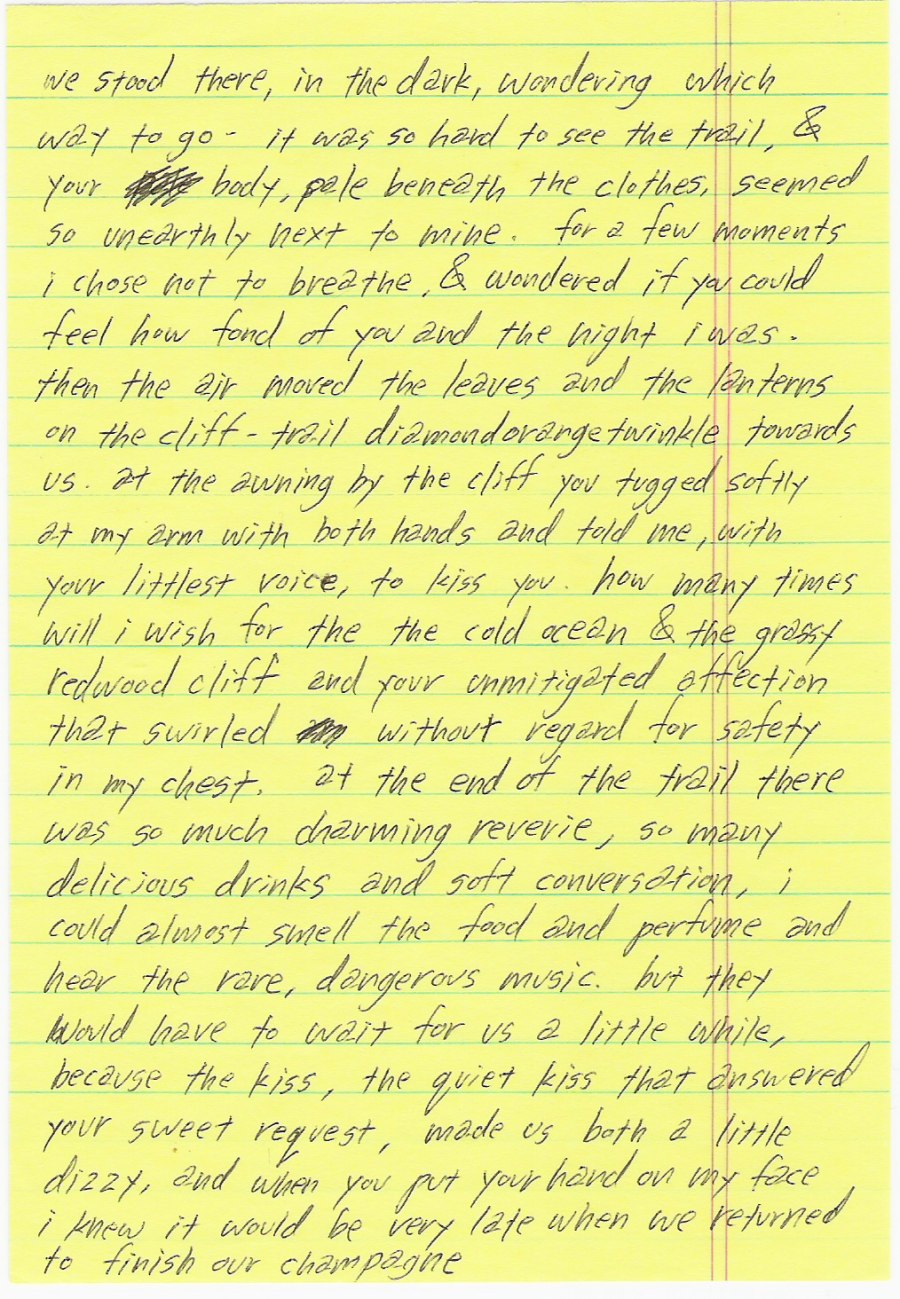 we stood there, in the dark, wondering which
way to go - it was so hard to see the trail, &
your body, pale beneath the clothes, seemed
so unearthly next to mine. for a few moments
i chose not to breathe, & wondered if you could
feel how fond of you and the night i was.
then the air moved the leaves and the lanterns
on the cliff-trail diamondorangetwinkle towards
us. at the awning by the cliff you tugged softly
at my arm with both hands and told me, with
your littlest voice, to kiss you. how many times
will i wish for the the cold ocean & the grassy
redwood cliff and your unmitigated affection
that swirled without regard for safety
in my chest. at the end of the trail there
was so much charming reverie, so many
delicious drinks and soft conversation, i
could almost smell the food and perfume and
hear the rare, dangerous music. but they
would have to wait for us a little while,
because the kiss, the quiet kiss that answered
your sweet request, made us both a little
dizzy, and when you put your hand on my face
i knew it would be very late when we returned
to finish our champagne